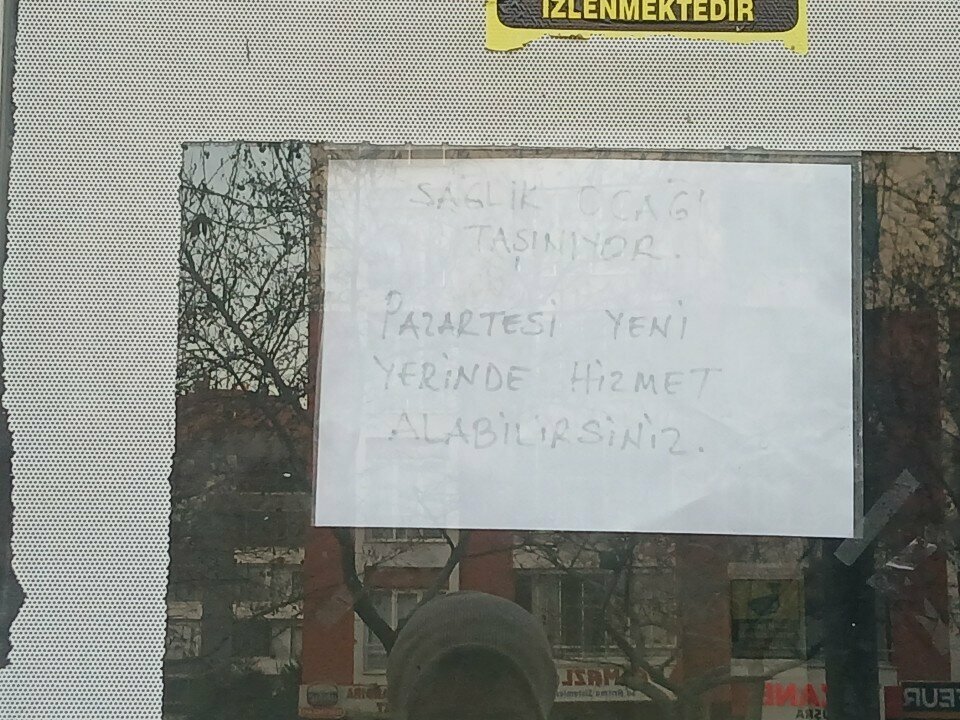 İZLENMEKTEDİR
SAĞLIK OCAĞI
TAŞINIYOR.
PAZARTESİ YENİ
YERİNDE HİZMET
ALABİLİRSİNİZ.